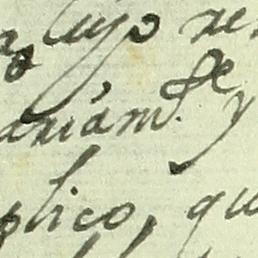 cuyo re
ariám.te y
plico, qu